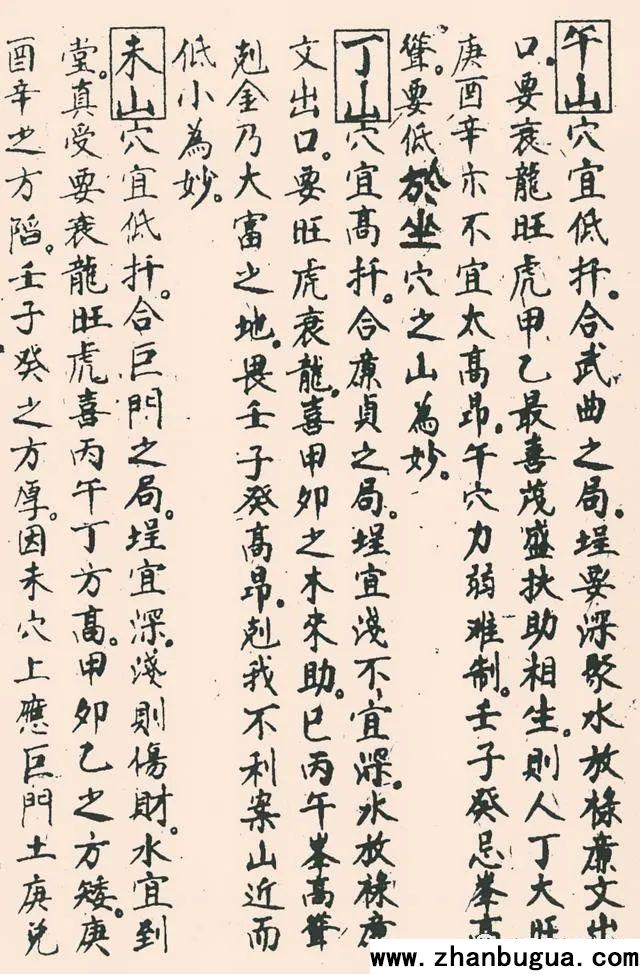 午山穴宜低扦。合武曲之局。埕要深聚水放祿廉文出
口。要衰龍旺虎甲乙最喜茂盛扶助相生。則人丁大旺
庚酉辛亦不宜太高昂。午穴力弱难制。壬子癸忌峯高
聳。要低於坐穴之山為妙。
丁山穴宜高扦。合廉貞之局。埕宜淺不宜深。水放祿廉
文出口。要旺虎衰龍。喜甲卯之木來助。巳丙午峯高聳
剋金乃大富之地。畏壬子癸高昂。剋我不利案山近而
低小為妙。
未山穴宜低扦。合巨門之局。埕宜深。淺則傷財。水宜到
堂。真受要衰龍旺虎喜丙午丁方高。甲卯乙之方矮。庚
酉辛之方陷。壬子癸之方厚。因未穴上應巨門土庚兌
www.zhanbugua.com